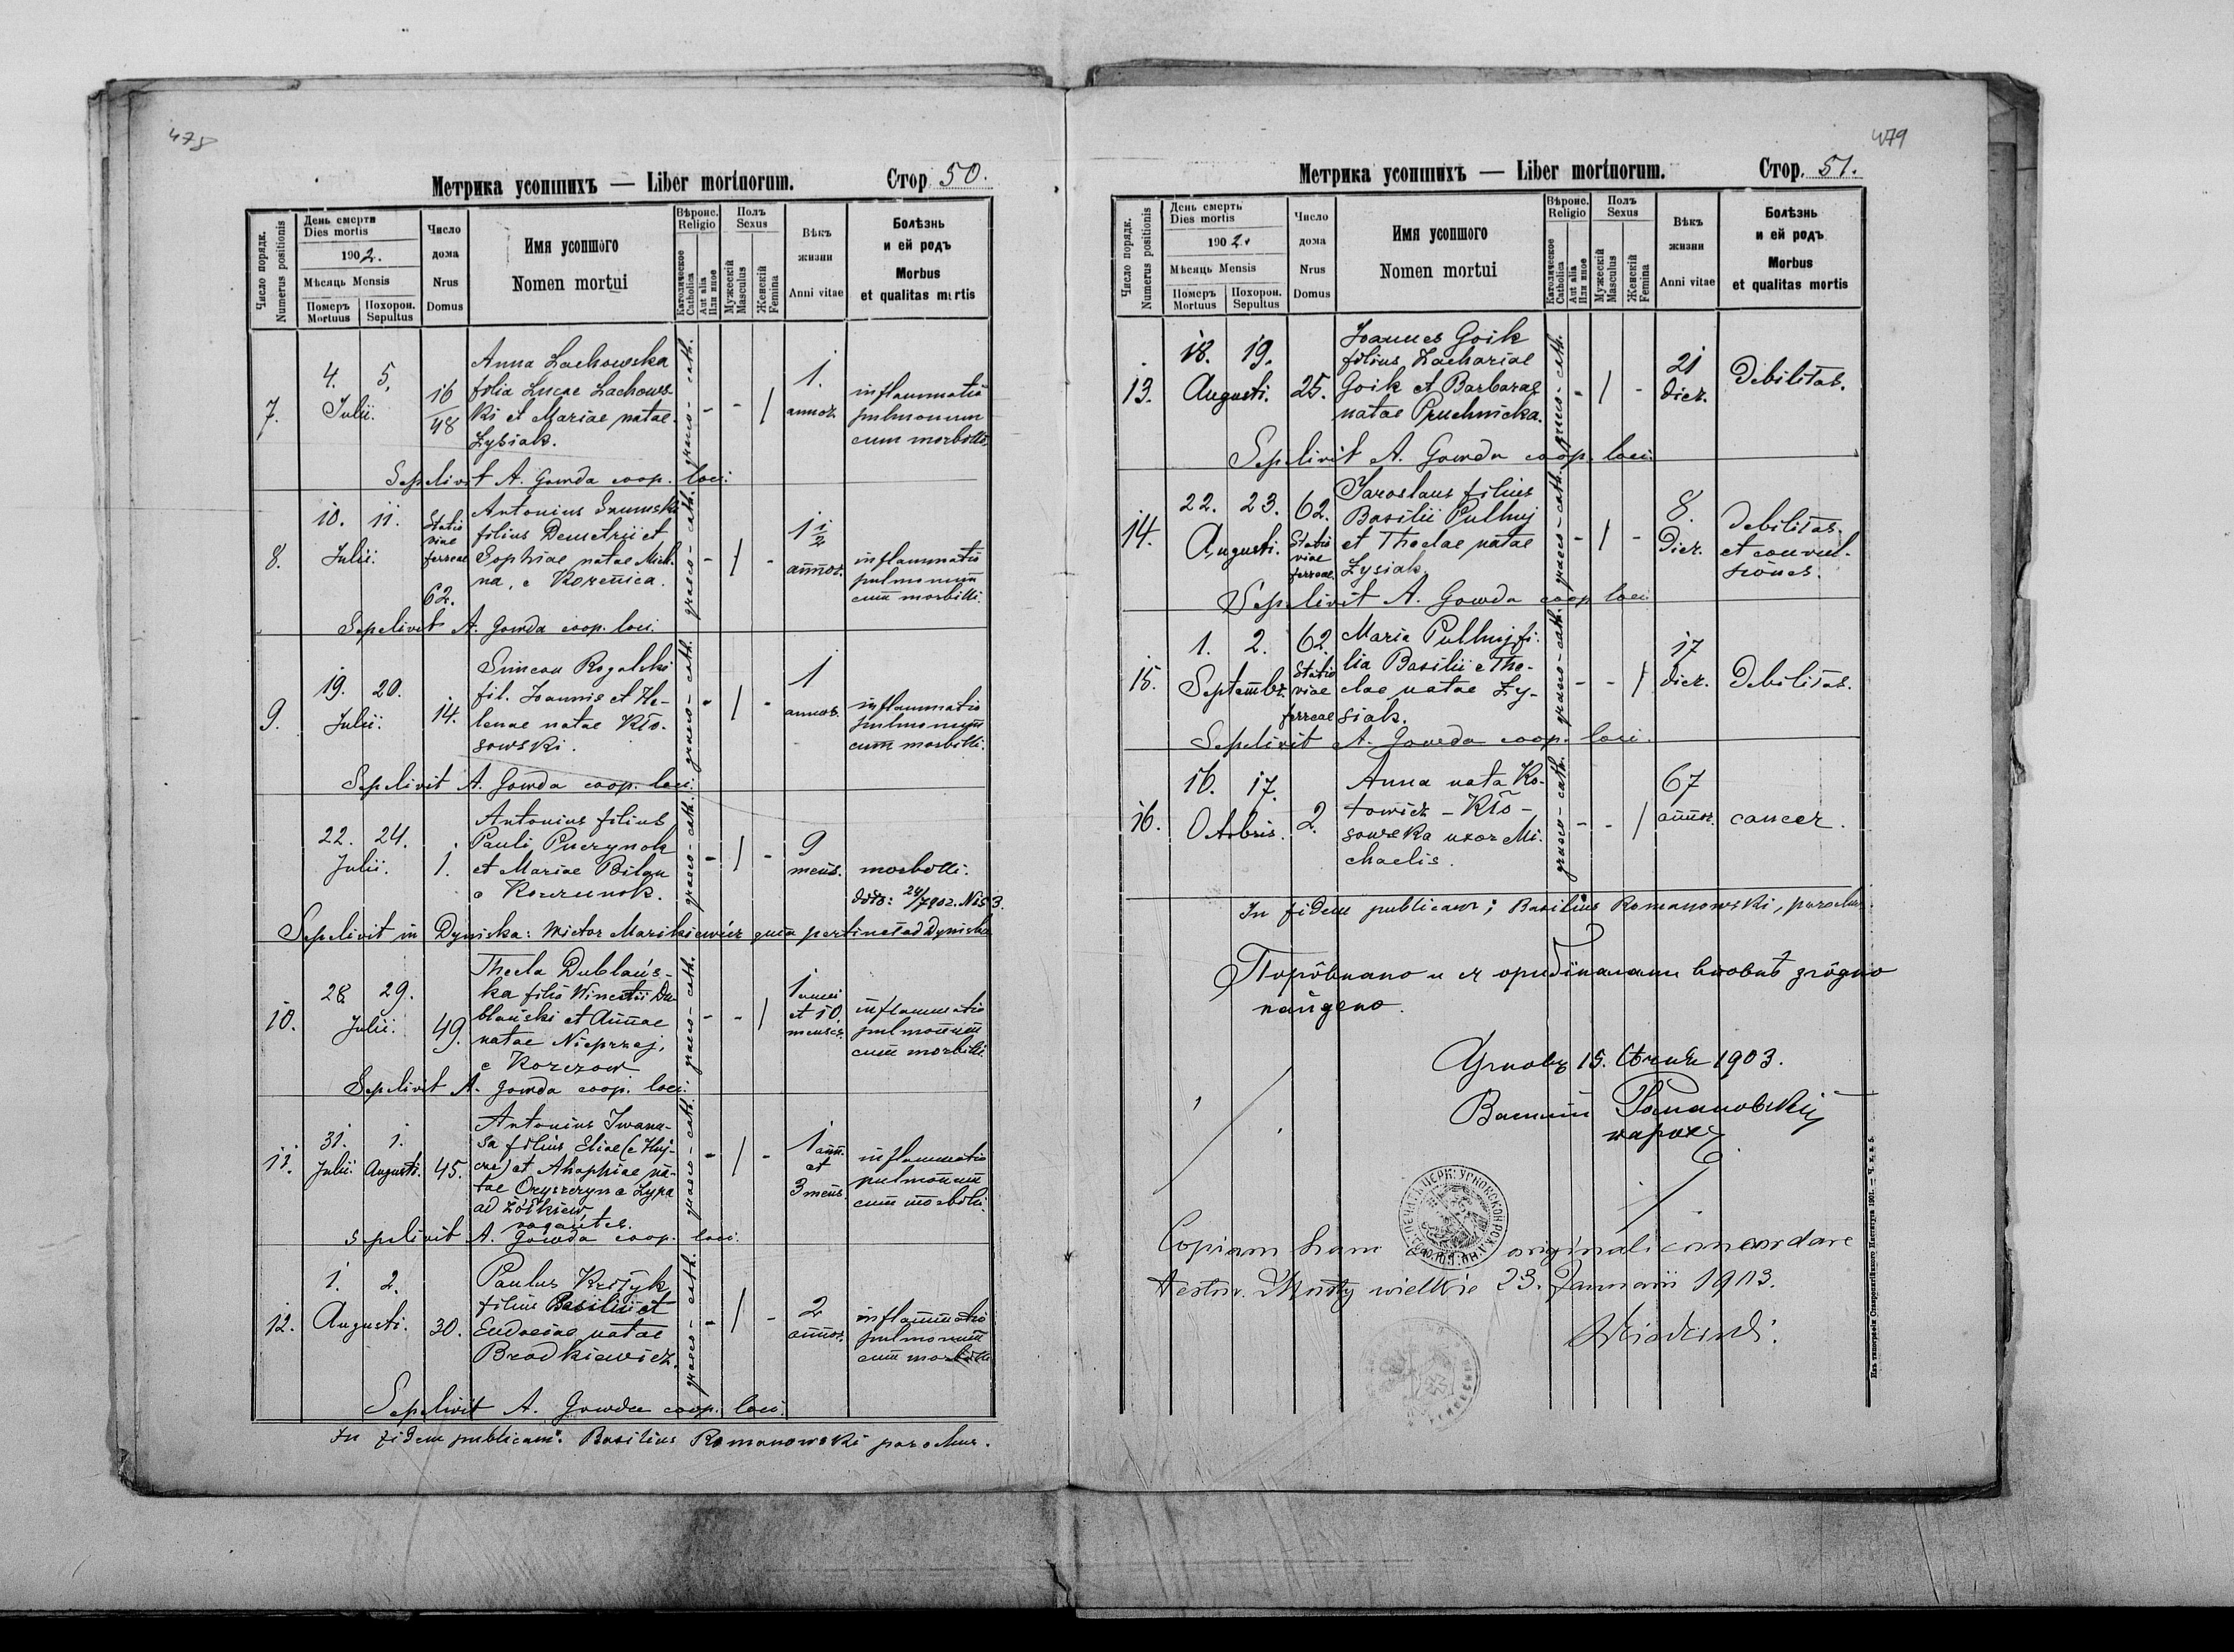 478
Метрика усопшихъ — Liber mortuorum. Стор. 50.
Число порядк. Numerus positionis
День смерти
Dies mortis
1902.
Мѣсяць Mensis
Померъ Mortuus
Похорон. Sepultus
Число дома Nrus Domus
Имя усопшого
Nomen mortui
Вѣроис. Religio
Католическое Catholica
Aut alia Или иное
Полъ Sexus
Мужескій Masculus
Женскій Femina
Вѣкъ жизни Anni vitae
Болѣзнь и ей родъ
Morbus et qualitas mortis
7. 4. 5. Julii. 16/48
Anna Lachowska
filia Lucae Lachows-
ki et Mariae natae
Zysiak.
graeco-cath. - - / 1. annor.
inflammatio
pulmonum
cum morbilli.
Sepelivit A. Gowda coop. loci.
8. 10. 11. Julii. Statio viae ferreae 62.
Antonius
filius Demetrii et
Sophiae natae Mich-
na, e Korenica.
graeco-cath. - / - 1 1/2 annor.
inflammatio
pulmonum
cum morbilli.
Sepelivit A. Gowda coop. loci.
9. 19. 20. Julii. 14.
Simeon Rogalski
fil. Joannis et He-
lenae natae Kło-
sowski.
graeco-cath. - / - 1 annor.
inflammatio
pulmonum
cum morbilli.
Sepelivit A. Gowda coop. loci.
22. 24. Julii. 1.
Antonius filius
Pauli Puczynok
et Mariae Bilan
e
graeco-cath. - / - 9 mens.
morbilli.
ddto: 24/7902. No 53.
Sepelivit in Dyniska: Victor quia pertinet ad Dyniska
10. 28. 29. Julii. 49.
Thecla Dublańs-
ka filia Wincetii Du-
blański et Annae
natae Nieprzej,
e Korczow
graeco-cath. - - / 1 anni et 10 menses
inflammatio
pulmonum
cum morbilli
Sepelivit A. Gowda coop. loci.
11. 31. Julii. 1. Augusti. 45.
Antonius Iwanu-
sa filius Eliae (e Huj-
cze) et Ahaphiae na-
tae Oryszczyn e Lypa
ad Żółkiew,
vagantes.
graeco-cath. - / - 1 ann. et 3 mens.
inflammatio
pulmonum
cum morbilli.
Sepelivit A. Gowda coop. loci.
12. 1. 2. Augusti. 30.
Paulus Kryżyk
filius Basilii et
Eudociae natae
Brodkiewicz.
graeco-cath. - / - 2 annor.
inflammatio
pulmonum
cum morbilli
Sepelivit A. Gowda coop. loci.
In fidem publicam: Basilius Romanowski parochus.
479
Метрика усопшихъ — Liber mortuorum. Стор. 51.
Число порядк. Numerus positionis
День смерть
Dies mortis
1902.
Мѣсяць Mensis
Померъ Mortuus
Похорон. Sepultus
Число дома Nrus Domus
Имя усопшого
Nomen mortui
Вѣроис. Religio
Католическое Catholica
Aut alia Или иное
Полъ Sexus
Мужескій Masculus
Женскій Femina
Вѣкъ жизни Anni vitae
Болѣзнь и ей родъ
Morbus et qualitas mortis
13. 18. 19. Augusti. 25.
Joannes Goik
filius Zachariae
Goik et Barbarae
natae Pruchnicka.
graeco-cath. - / - 21 dier.
Debilitas.
Sepelivit A. Gowda coop. loci.
14. 22. 23. Augusti. 62. Statio viae ferreae
Jaroslaus filius
Basilii Pulhuj
et Theclae natae
Zysiak.
graeco-cath. - / - 8. Dier.
Debilitas
et convul-
siones.
Sepelivit A. Gowda coop loci
15. 1. 2. Septembr. 62. Statio viae ferreae
Maria Pulhuj fi-
lia Basilii e The-
clae natae Zy-
siak.
graeco-cath. - - / 17 dier.
Debilitas.
Sepelivit A. Gowda coop. loci.
16. 16. 17. Octobris. 2.
Anna nata Ko-
towicz - Kło-
sowska uxor Mi-
chaelis.
graeco-cath. - - / 67 annor.
cancer.
In fidem publicam; Basilius Romanowski, parochus.
Порôвнано и съ оригіналами вповнѣ згôдно
найдено.
15. 1903.
Василій Романовскій
парохъ
Copiam hanc originali concordare
testor. Mosty wielkie 23. Januarii 1903.
Изъ типографіи Ставропигійского Института 1901. — Ч. к. з. 5.